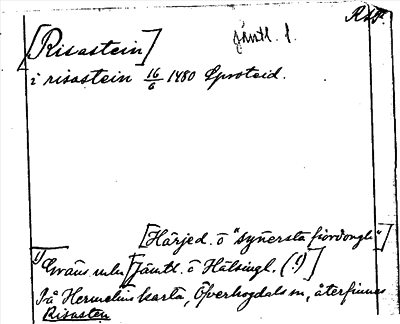 RSP.
[Risastein]
Jämtl. l.
i risastein 16/6 1480 Sproteid.
[Härjed. o "synersta fiordongh"]
1) Gräns mln [Jämtl. o Hälsingl. (!)]
På Hermelins karta, Öfverhogdals sn, återfinnes
Risasten